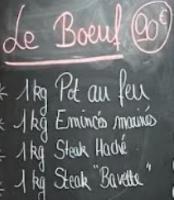 Le Boeuf 90€
* 1kg Pot au feu
* 1kg Emincés marinés
* 1kg Steak Haché
* 1kg Steak "Bavette"